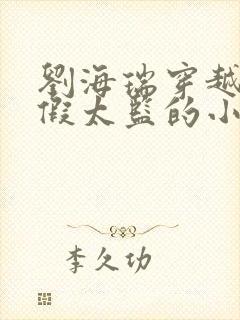 劉海瑞穿越
假太監的小
李久功